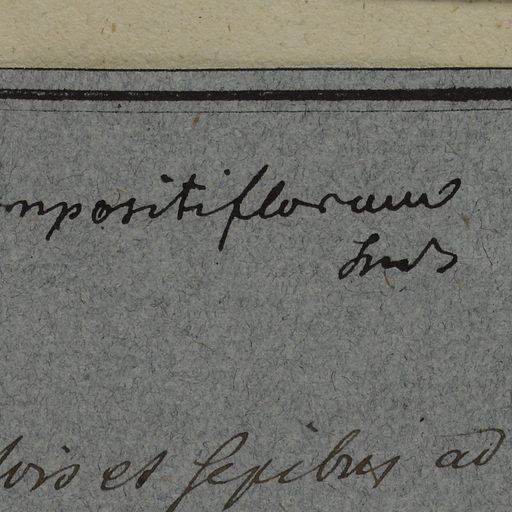 mpositiflorum
Lind
et Sepibus ad